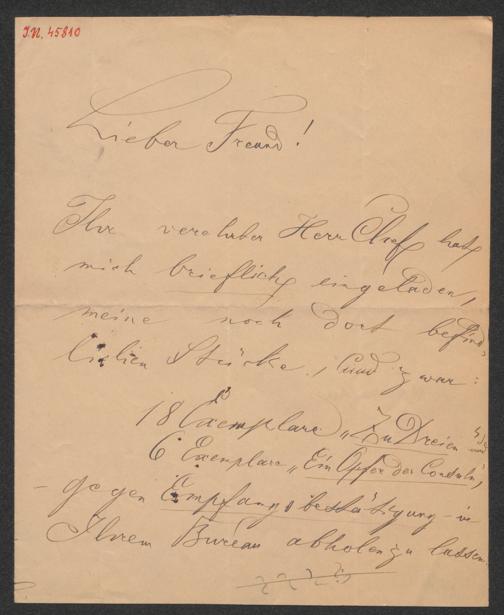 I.N. 45810
Lieber Freund!
Ihr verehrter Herr Chef hat
mich brieflich eingeladen,
meine noch dort befind-
lichen Stücke, und zwar:
18 Exemplare „Zu Dreien“ und
6 Exemplare „Ein Opfer der Consuln“,
– gegen Empfangsbestätigung – in
Ihrem Bureau abholen zu lassen.